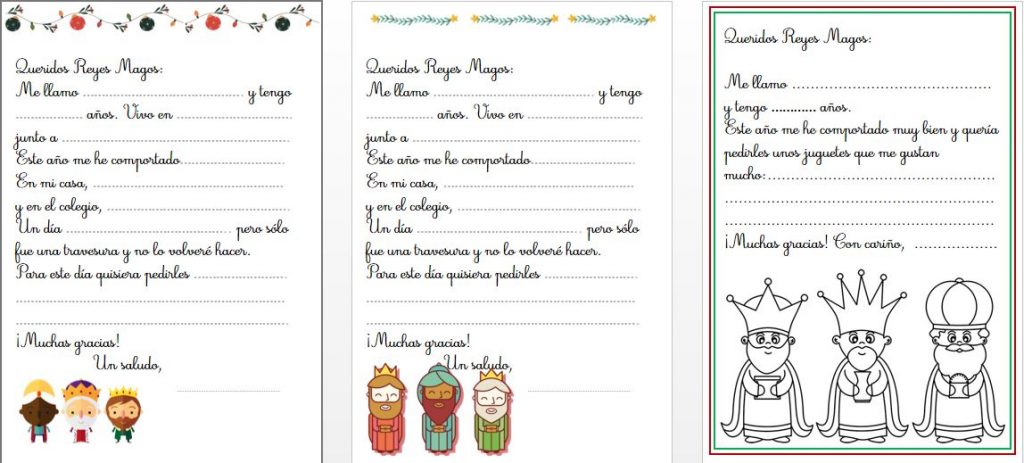 Queridos Reyes Magos:
Me llamo ........................................ y tengo
.................... años. Vivo en ..............................
junto a ........................................................
Este año me he comportado..........................
En mi casa, ................................................
y en el colegio, .............................................
Un día ........................................ pero sólo
fue una travesura y no lo volveré hacer.
Para este día quisiera pedirles ........................
....................................................................
....................................................................
¡Muchas gracias!
Un saludo,
..............................
Queridos Reyes Magos:
Me llamo ........................................ y tengo
.................... años. Vivo en ..............................
junto a ........................................................
Este año me he comportado..........................
En mi casa, ................................................
y en el colegio, .............................................
Un día ........................................ pero sólo
fue una travesura y no lo volveré hacer.
Para este día quisiera pedirles ........................
....................................................................
....................................................................
¡Muchas gracias!
Un saludo,
..............................
Queridos Reyes Magos:
Me llamo ........................................
y tengo ............ años.
Este año me he comportado muy bien y quería
pedirles unos juguetes que me gustan
mucho:..................................................
............................................................
............................................................
¡Muchas gracias! Con cariño, ..................